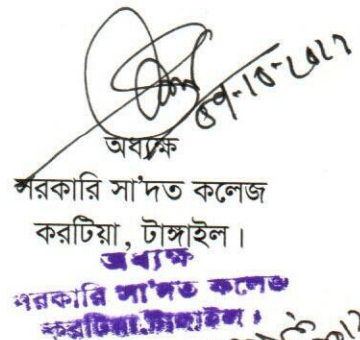 ০৭-১০-২০১২
অধ্যক্ষ
সরকারি সা'দত কলেজ
করটিয়া, টাঙ্গাইল।
অধ্যক্ষ
সরকারি সা'দত কলেজ
করটিয়া, টাঙ্গাইল।